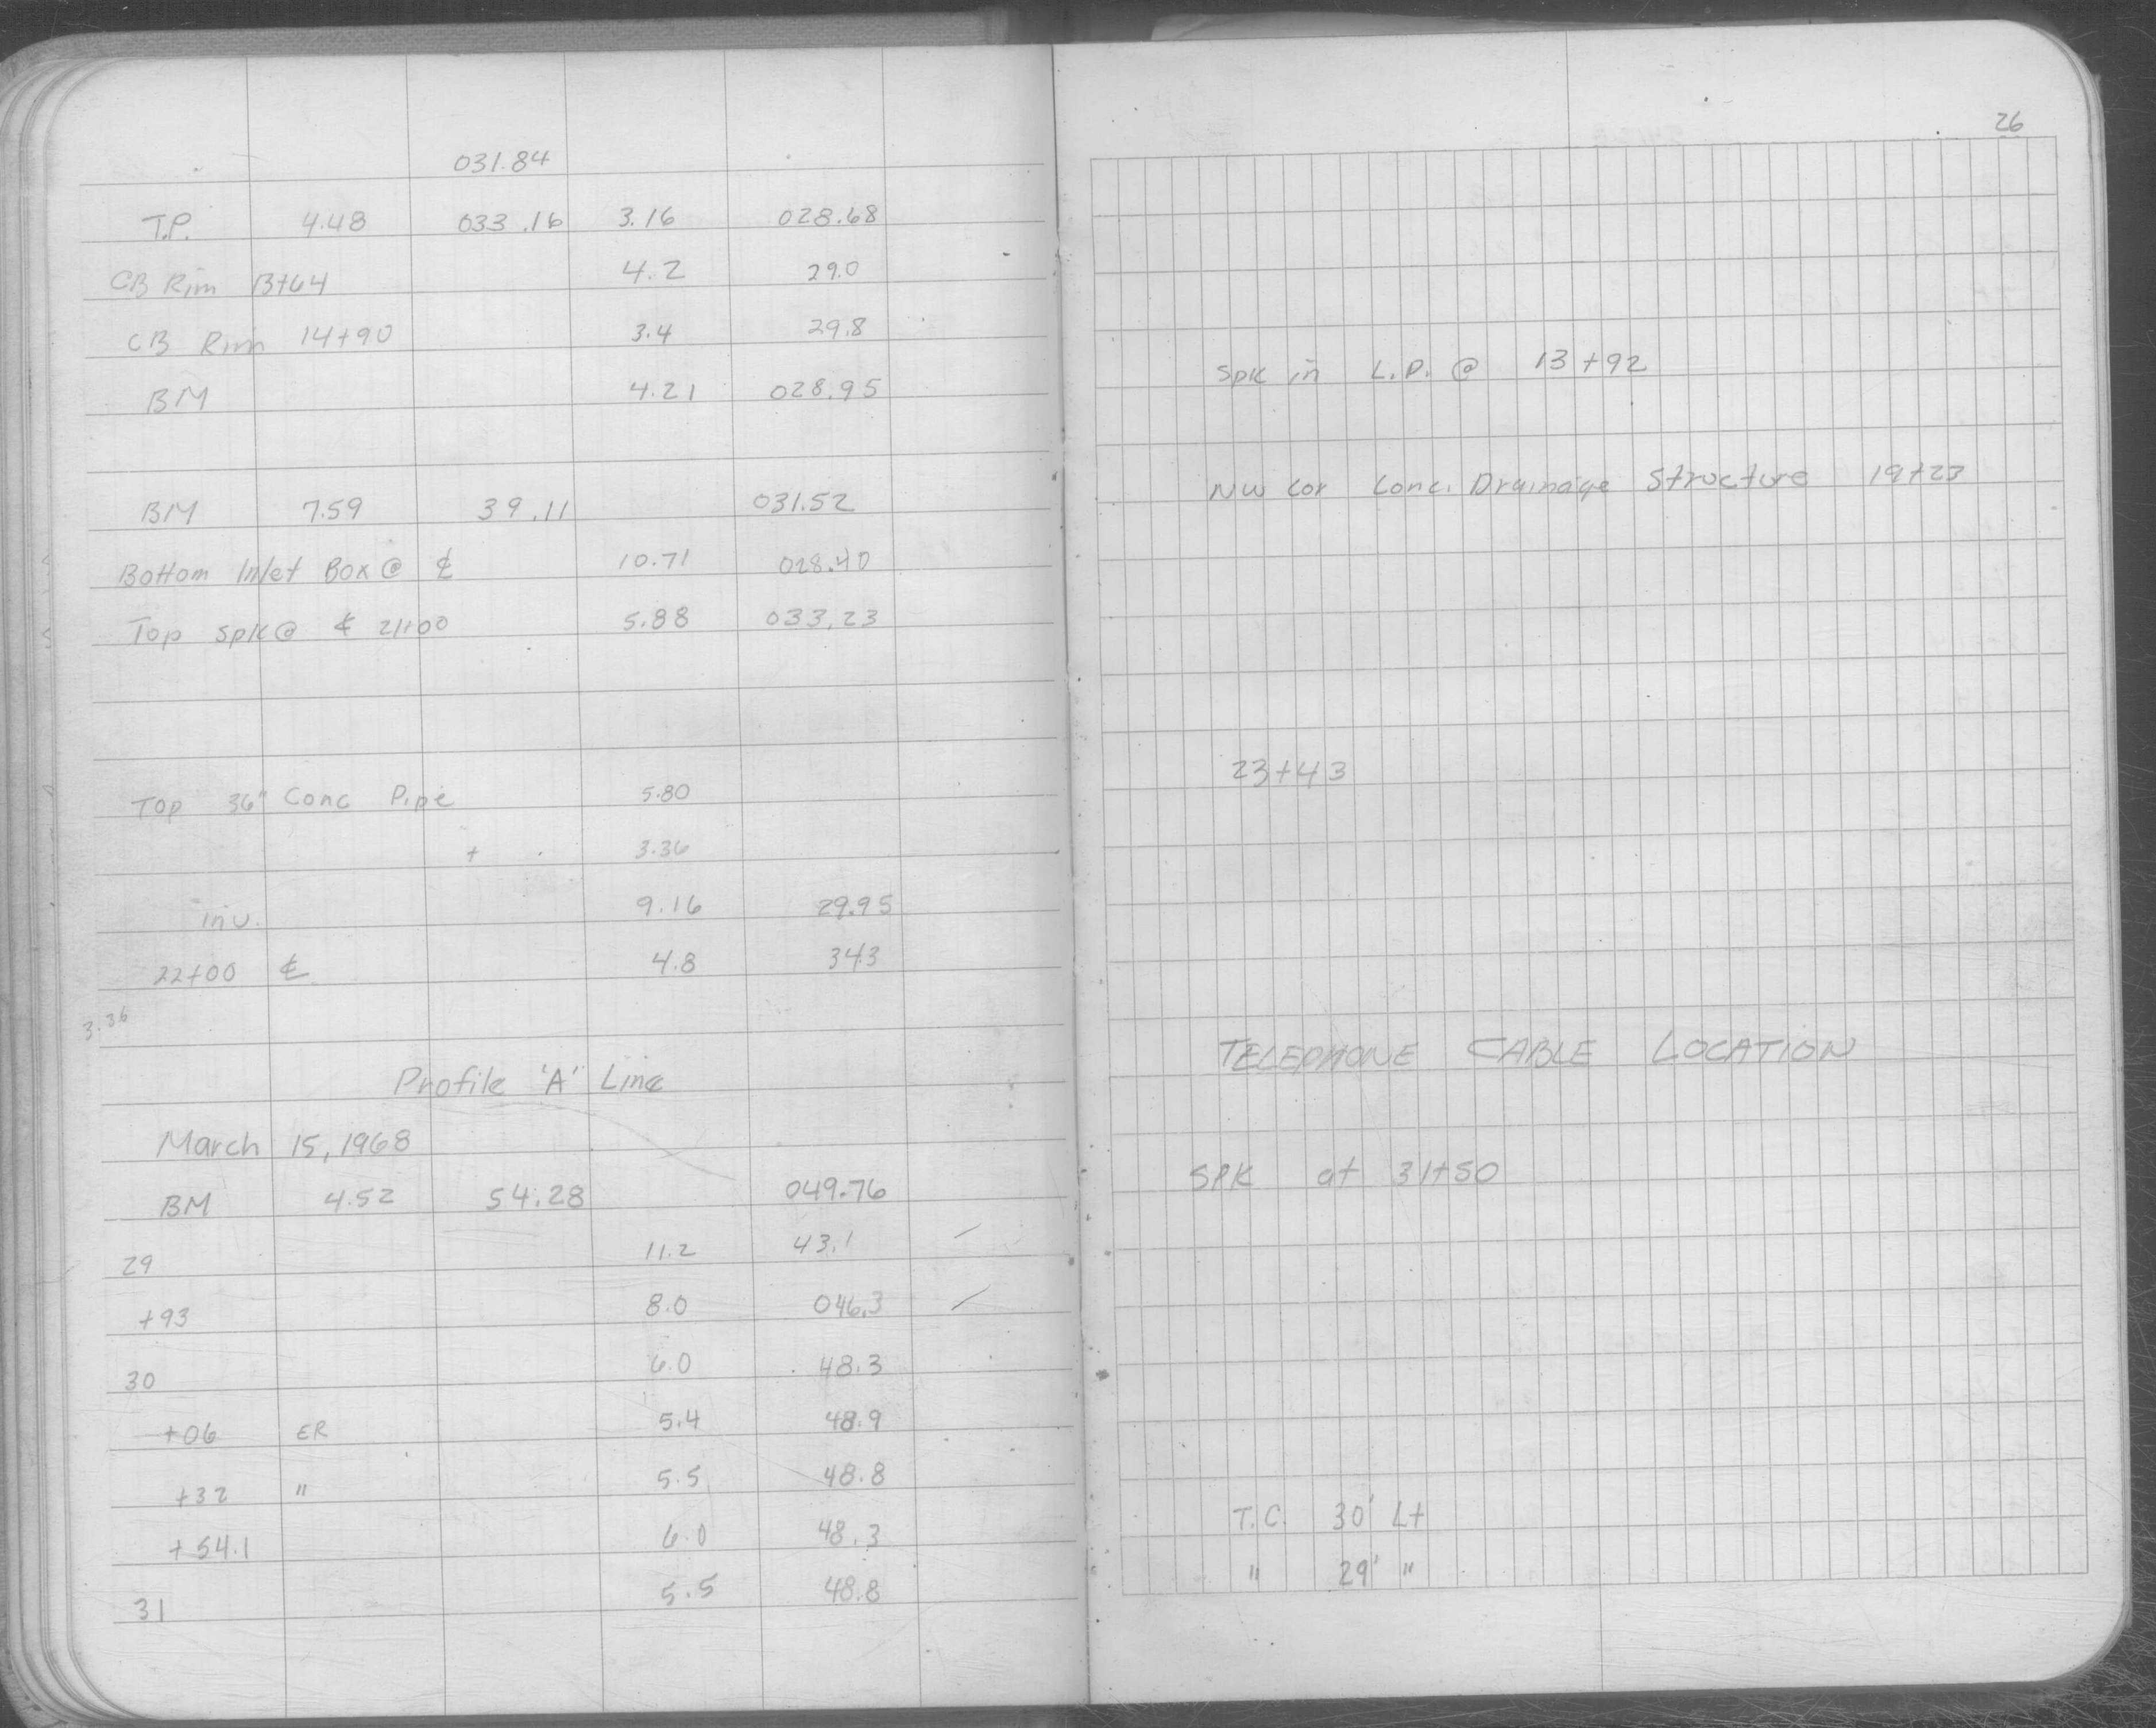 031.84
T.P. 4.48 033.16 3.16 028.68
CB Rim 13+64 4.2 29.0
CB Rim 14+90 3.4 29.8
BM 4.21 028.95
BM 7.59 39.11 031.52
Bottom Inlet Box @ ℄ 10.71 028.40
Top Spk @ ℄ 21+00 5.88 033.23
Top 36" Conc Pipe 5.80
+ 3.36
inv. 9.16 29.95
22+00 ℄ 4.8 34.3
3.36
Profile 'A' Line
March 15, 1968
BM 4.52 54.28 049.76
29 11.2 43.1 /
+93 8.0 046.3 /
30 6.0 48.3
+06 ER 5.4 48.9
+32 " 5.5 48.8
+54.1 6.0 48.3
31 5.5 48.8
26
Spk in L.P. @ 13+92
NW Cor Conc. Drainage Structure 19+23
23+43
TELEPHONE CABLE LOCATION
SPK at 31+50
T.C. 30' Lt
" 29' "